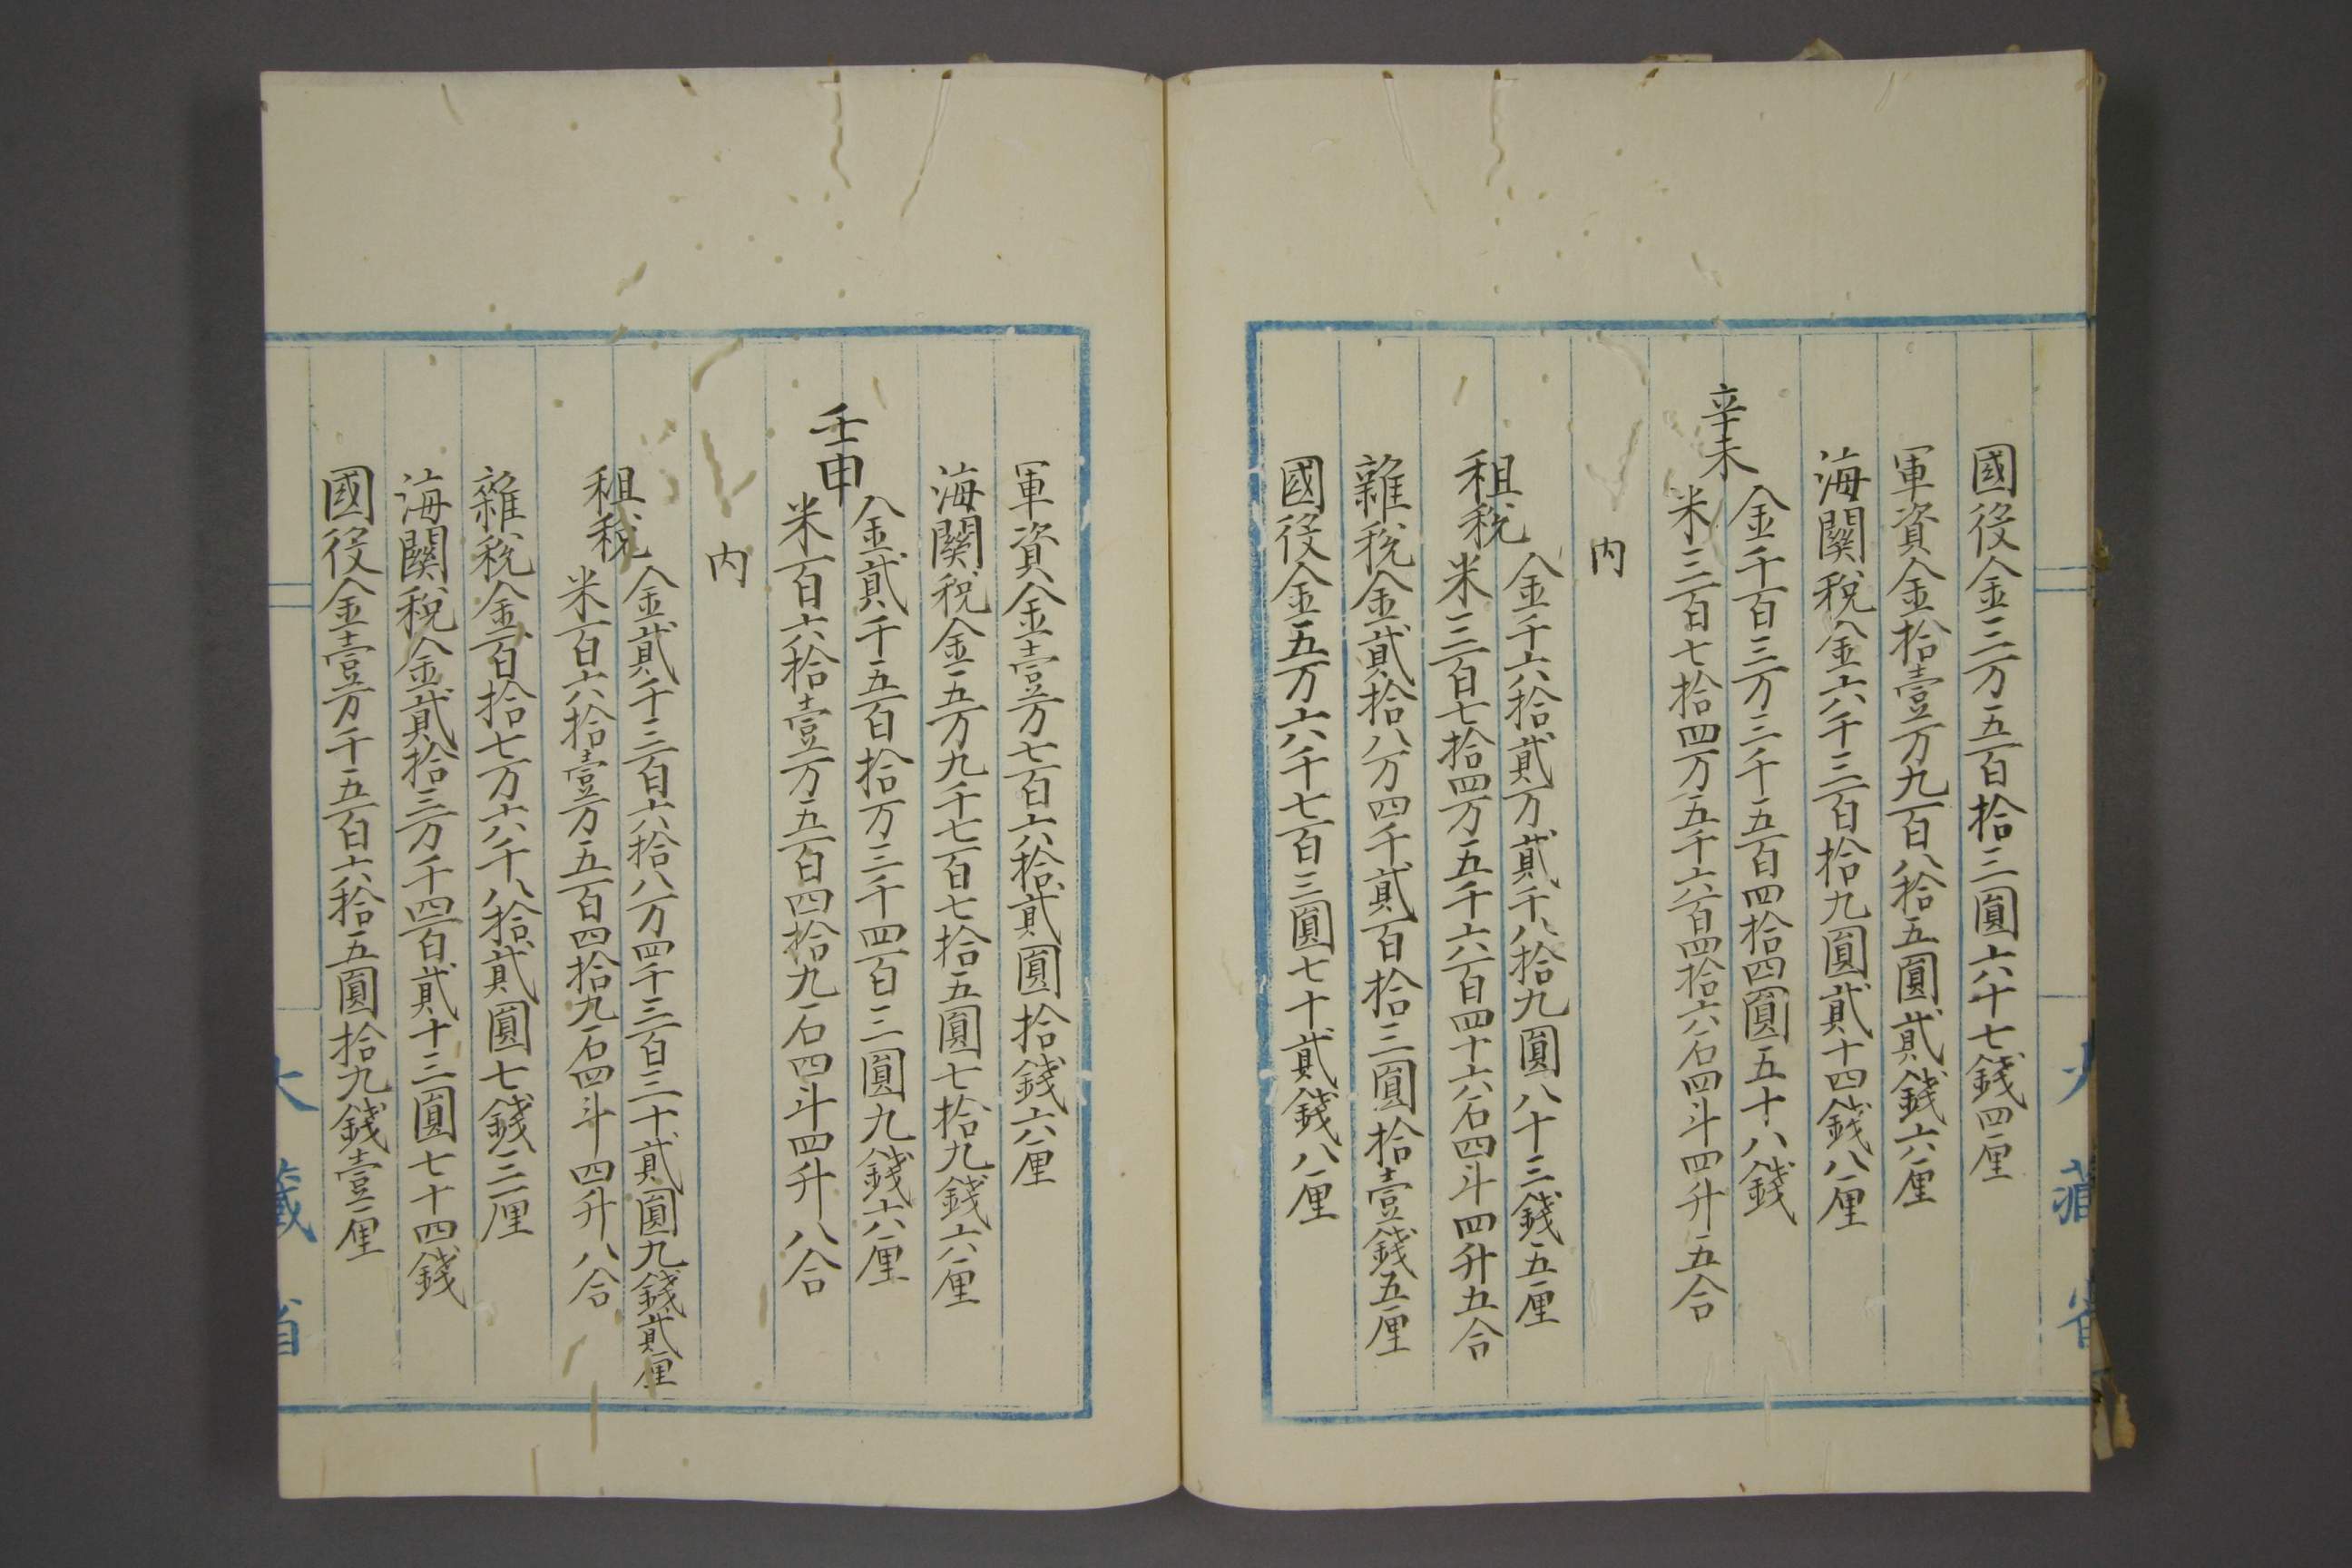 大藏省
國役金三万五百拾三圓六十七錢四厘
軍資金拾壹万九百八拾五圓貳錢六厘
海關税金六千三百拾九圓貳十四錢八厘
辛未
金千百三万三千五百四拾四圓五十八錢
米三百七拾四万五千六百四拾六石四斗四升五合
内
租税
金千六拾貳万貳千八拾九圓八十三錢五厘
米三百七拾四万五千六百四十六石四斗四升五合
雜税金貳拾八万四千貳百拾三圓拾壹錢五厘
國役金五万六千七百三圓七十貳錢八厘
軍資金壹万七百六拾貳圓拾錢六厘
海關税金五万九千七百七拾五圓七拾九錢六厘
壬申
金貳千五百拾万三千四百三圓九錢六厘
米百六拾壹万五百四拾九石四斗四升八合
内
租税
金貳千三百六拾八万四千三百三十貳圓九錢貳厘
米百六拾壹万五百四拾九石四斗四升八合
雜税金百拾七万六千八拾貳圓七錢三厘
海關税金貳拾三万千四百貳十三圓七十四錢
國役金壹万千五百六拾五圓拾九錢壹厘
大藏省